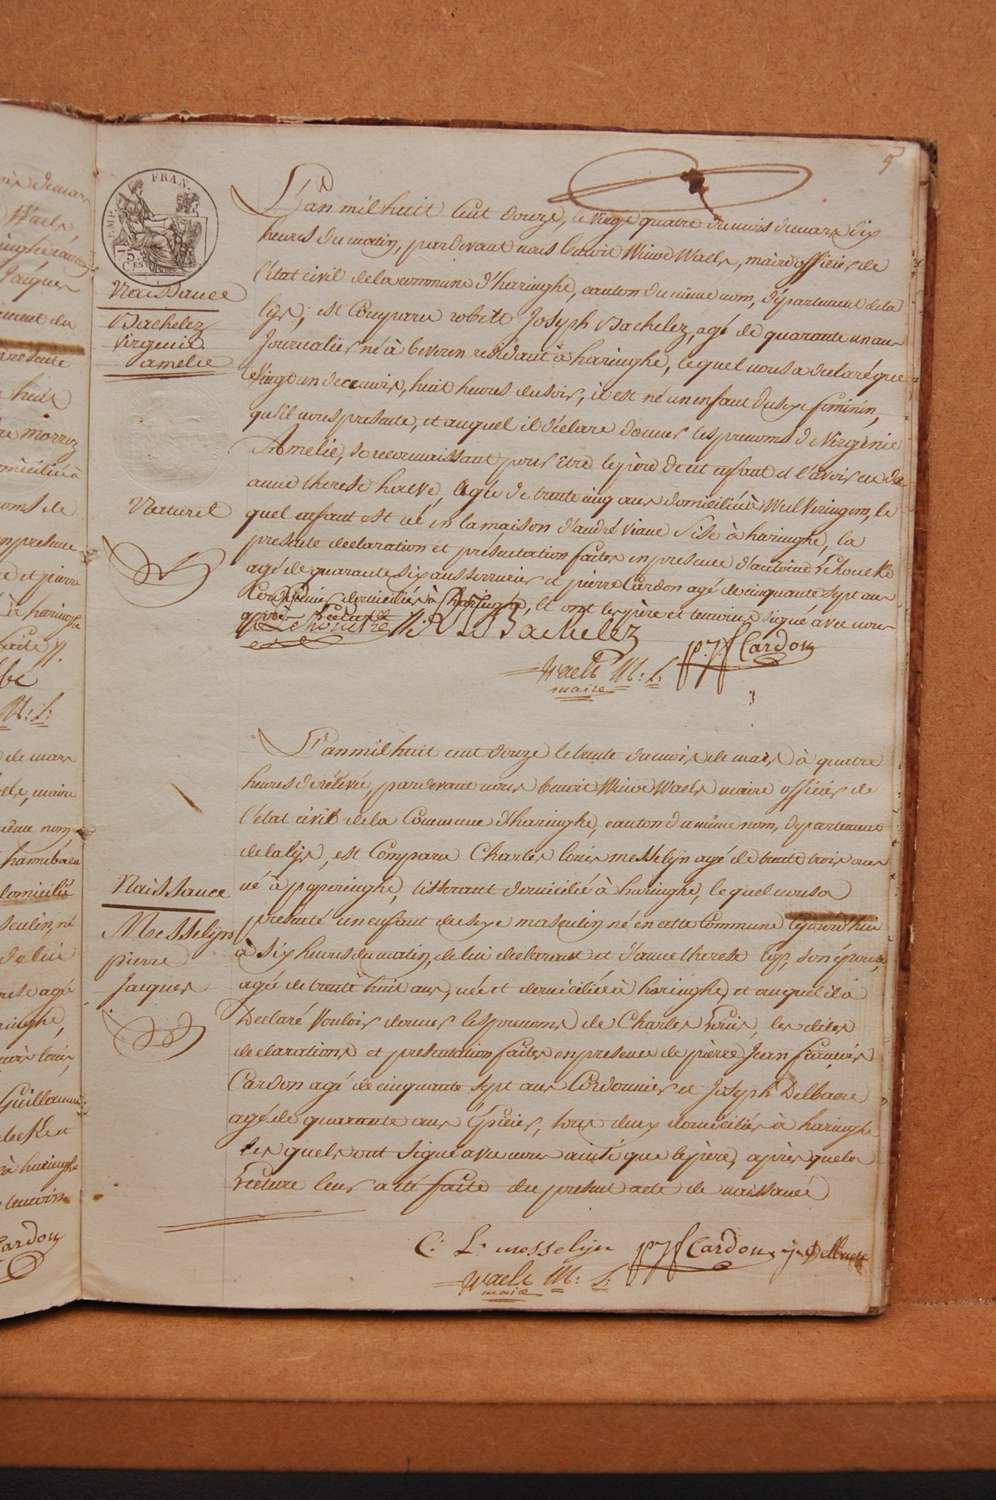 5
FRAN.
75
Naissance
Bachelez
Virginie
amelie
Naturel
L'an mil huit Cent douze, le vingt quatre du mois de mars dix
heures du matin, pardevant nous benoit Winoc Waels, maire officier de
l'état civil de la commune d'haringhe, canton du même nom, département de la
lys; est Comparu robert Joseph Bachelez, agé de quarante un ans
Journalier né à beveren residant à haringhe, lequel nous a declaré que
vingt un de ce mois, huit heures du soir, il est né un enfant du sexe feminin,
qu'il nous presente, et auquel il déclare donner les prenoms de Virginie
Amelie, se reconnaissant pour Etre le père de cet enfant et l'avoir eu de
anne therese, agée de trente cinq ans domiciliée à Wulveringem, le
quel enfant est né en la maison d'andré viane Sise à haringhe, la
presente declaration et présentation faites en presence d'antoine
agé de quarante six ans serrurier et pierre Cardon agé de cinquante sept ans
Cordonnier domiciliés à haringhe, Et ont les père et temoins signé avec nous
après lecture
R J Bachelez
p. j. f Cardon
Waels M: L:
maire
Naissance
Messelyn
pierre
Jacques
L'an mil huit cent douze le trente du mois de mars à quatre
heures de relevé, pardevant nous benoit Winoc Waels maire officier de
l'état civil de la Commune d'haringhe, canton du même nom, département
de la lys, est Comparu Charles louis messelyn agé de trente trois ans
né à poperinghe, tisserant domicilié à haringhe, lequel nous a
presenté un enfant du sexe masculin né en cette Commune Cejourd'hui
à six heures du matin, de lui declarant et d'anne therese, son épouse,
agée de trente huit ans, née et domiciliée à haringhe, et auquel il a
Declaré Vouloir donner les prenoms de Charles Louis, les dites
declarations et presentation faites en presence de pierre Jean françois
Cardon agé de cinquante sept ans Cordonnier et Joseph Delbaere
agé de quarante ans Epicier, tous deux domiciliés à haringhe
les quels ont signé avec nous ainsi que le père, après que la
Lecture leur a été faite du present acte de naissance
C: L: messelyn p j f Cardon j Delbaere
Waels M: L:
maire